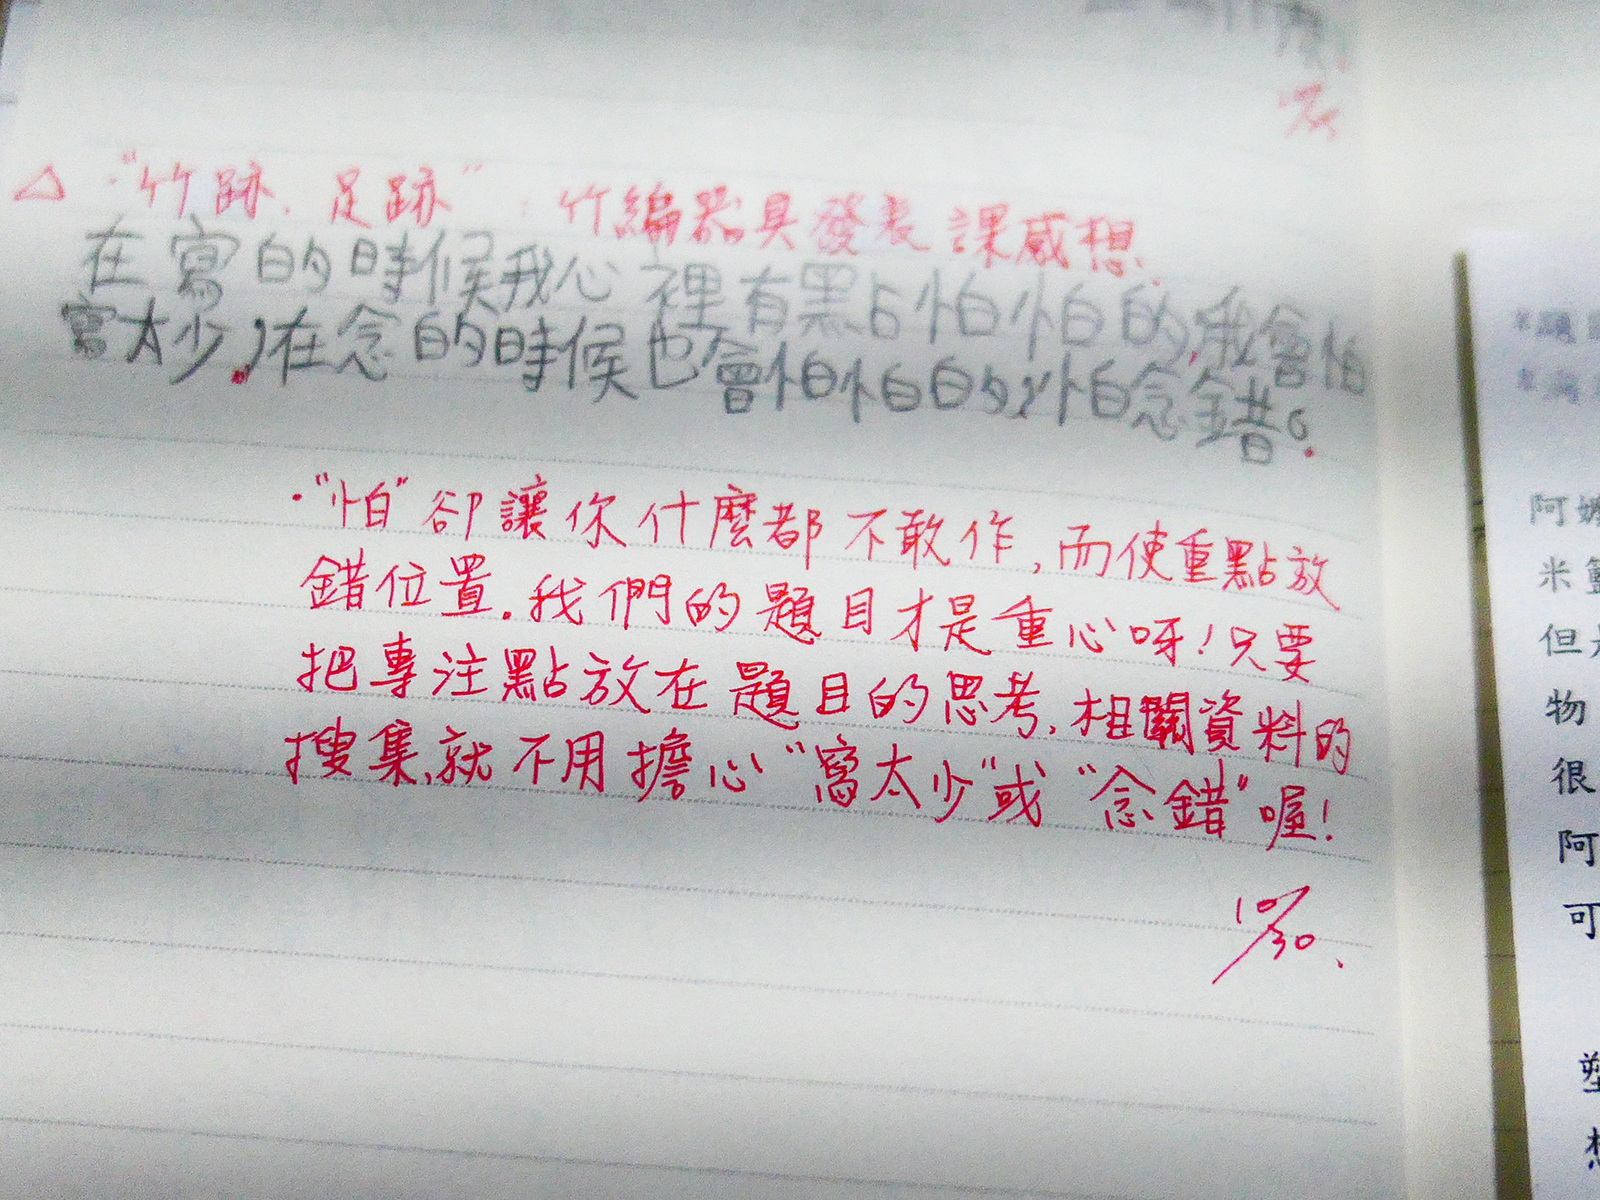 △ ·"竹跡、足跡":竹編器具發表課感想.
在寫的時候我心裡有黑占怕怕的,我會怕
寫太少,在念的時候也會怕怕的,怕念錯。
·"怕"卻讓你什麼都不敢作,而使重點放
錯位置.我們的題目才是重心呀!只要
把專注點放在題目的思考、相關資料的
搜集,就不用擔心"寫太少"或"念錯"喔!
10/30.
阿
米
但
物
很
阿
可
想